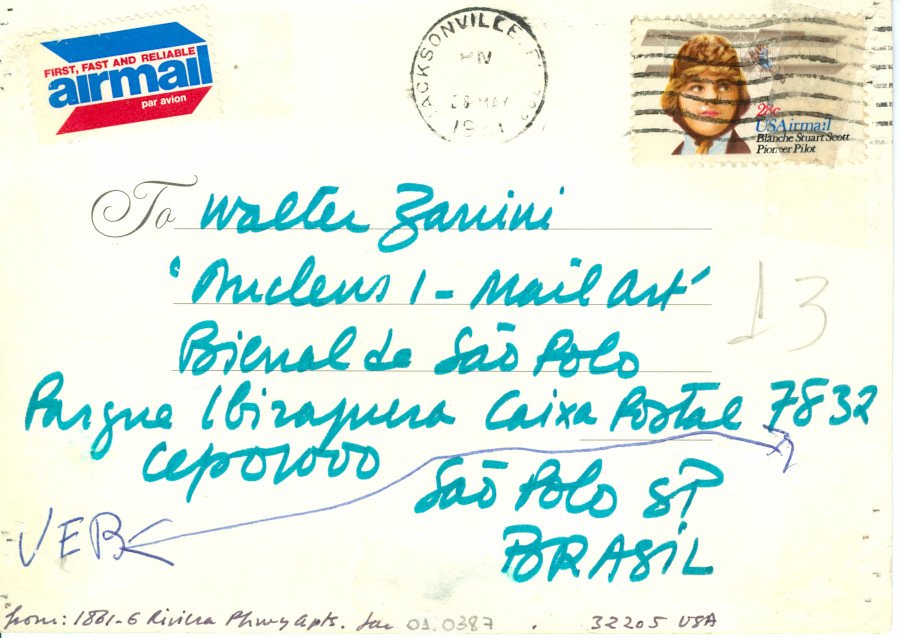 FIRST, FAST AND RELIABLE
airmail
par avion
JACKSONVILLE, FL
PN
28 MAY
1981
28c
USAirmail
Blanche Stuart Scott
Pioneer Pilot
To Walter Zanini
'Nucleus 1 - Mail Art'
13
Bienal de São Polo
Parque Ibirapuera Caixa Postal 7832
Cep 01000
São Polo SP
VER
BRASIL
from: 1861-6 Riviera Pkwy Apts. 01.0387 . 32205 USA